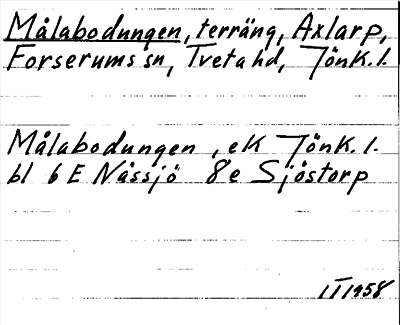 Målabodungen, terräng, Axlarp,
Forserums sn, Tveta hd, Jönk. l.
Målabodungen, ek Jönk. l.
bl 6 E Nässjö 8e Sjöstorp
II 1958